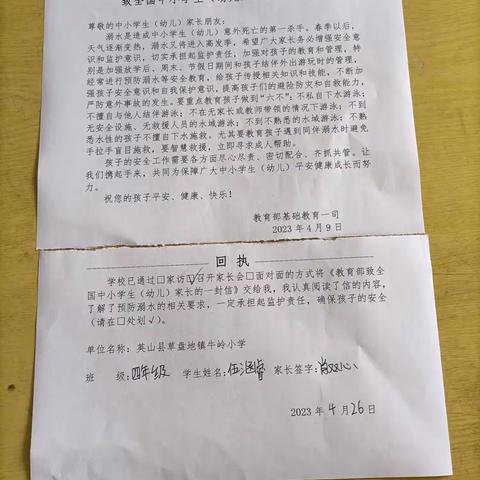 致全国中小学生（幼儿
尊敬的中小学生（幼儿）家长朋友：
溺水是造成中小学生（幼儿）意外死亡的第一杀手。春季以后，
天气逐渐变热，溺水又将进入高发季，希望广大家长务必增强安全意
识和监护意识，切实承担起监护责任，加强对孩子的教育和管理，特
别是加强放学后、周末、节假日期间和孩子结伴外出游玩时的管理，
经常进行预防溺水等安全教育，给孩子传授相关知识和技能，不断加
强孩子安全意识和自我保护意识，提高孩子们的避险防灾和自救能力，
严防意外事故的发生。要重点教育孩子做到“六不”：不私自下水游泳；
不擅自与他人结伴游泳；不在无家长或教师带领的情况下游泳；不到
无安全设施、无救援人员的水域游泳；不到不熟悉的水域游泳；不熟
悉水性的孩子不擅自下水施救。尤其要教育孩子遇到同伴溺水时避免
手拉手盲目施救，要智慧救援，立即寻求成人帮助。
孩子的安全工作需要各方面尽心尽责、密切配合、齐抓共管。让
我们携起手来，共同为保障广大中小学生（幼儿）平安健康成长而努
力。
祝您的孩子平安、健康、快乐！
教育部基础教育一司
2023 年 4 月 9 日
回 执
学校已通过□家访☑召开家长会□面对面的方式将《教育部致全
国中小学生（幼儿）家长的一封信》交给我，我认真阅读了信的内容，
了解了预防溺水的相关要求，一定承担起监护责任，确保孩子的安全
（请在□处划√）。
单位名称：英山县草盘地镇牛岭小学
班 级：四年级 学生姓名：伍 家长签字：
2023 年 4 月 26 日